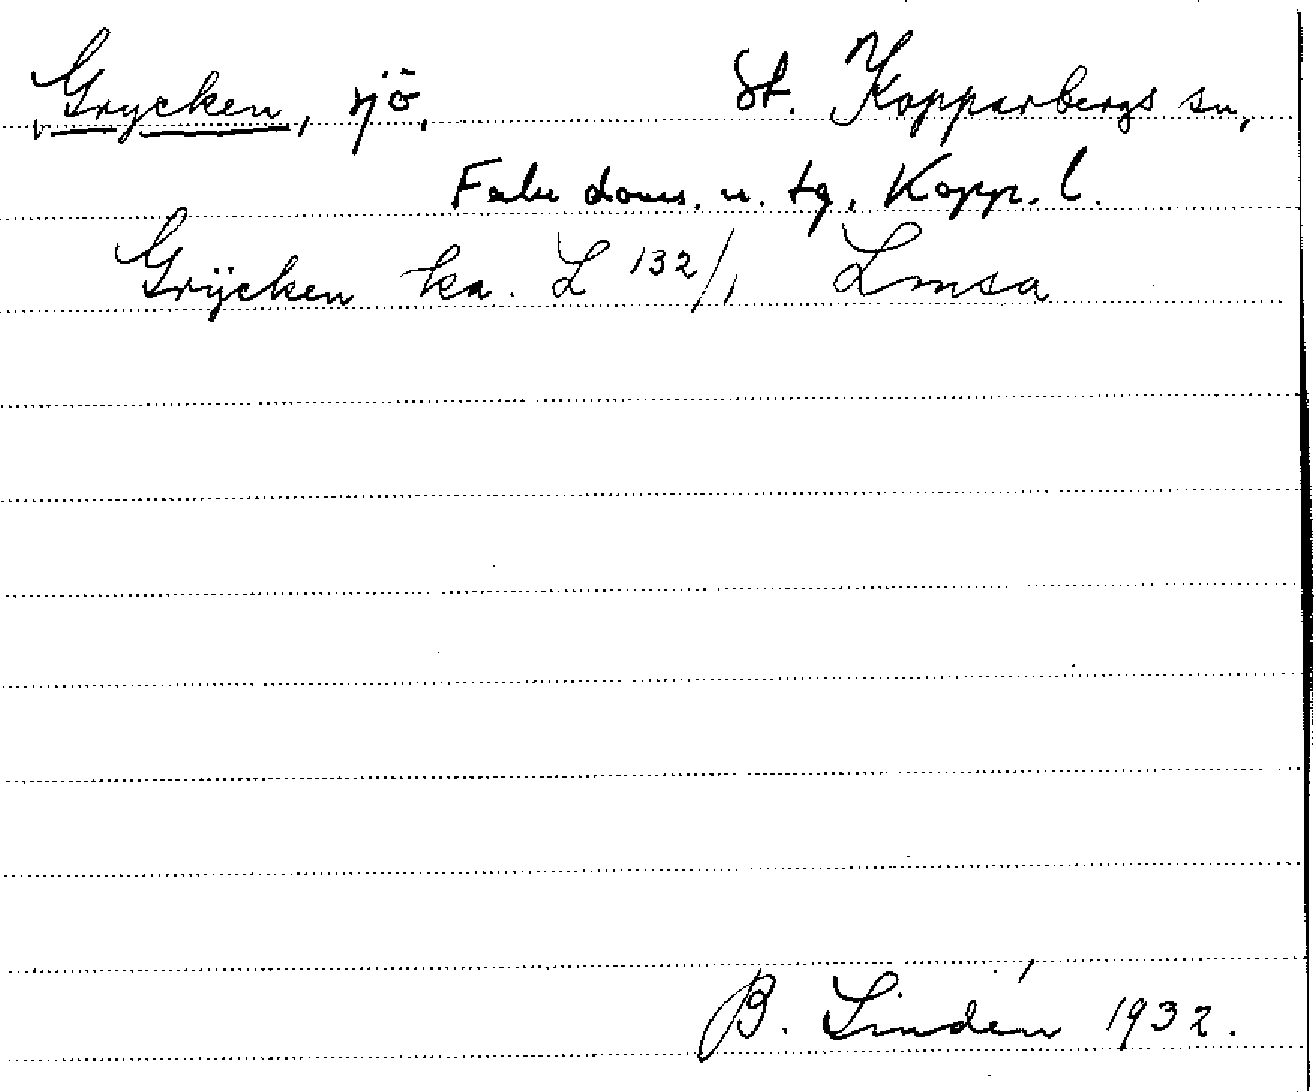 Grycken, sjö, St. Kopparbergs sn,
Falu doms. n. tg. Kopp. l.
Grÿcken ka. L 132/1 Lmsa
B. Lindén 1932.